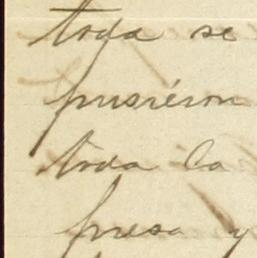 toda se
pusiéron
toda la
presa y